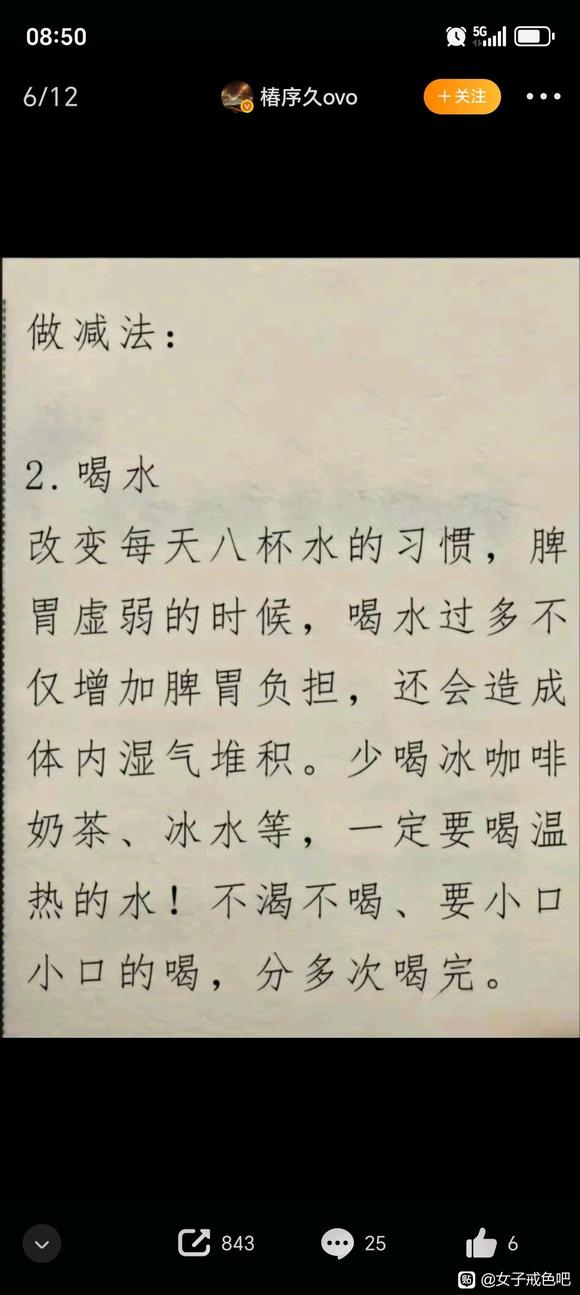 08:50
5G
6/12
椿序久ovo
+关注
做减法：
2.喝水
改变每天八杯水的习惯，脾
胃虚弱的时候，喝水过多不
仅增加脾胃负担，还会造成
体内湿气堆积。少喝冰咖啡
奶茶、冰水等，一定要喝温
热的水！不渴不喝、要小口
小口的喝，分多次喝完。
843
25
6
贴 @女子戒色吧